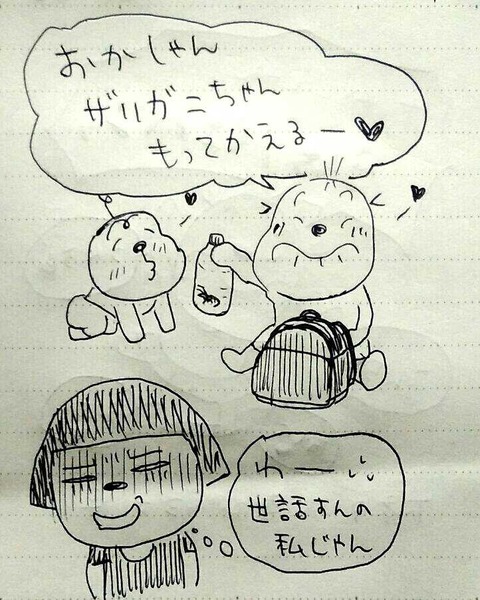 おかしゃん
ザリガニちゃん
もってかえるー♥
わー
世話すんの
私じゃん